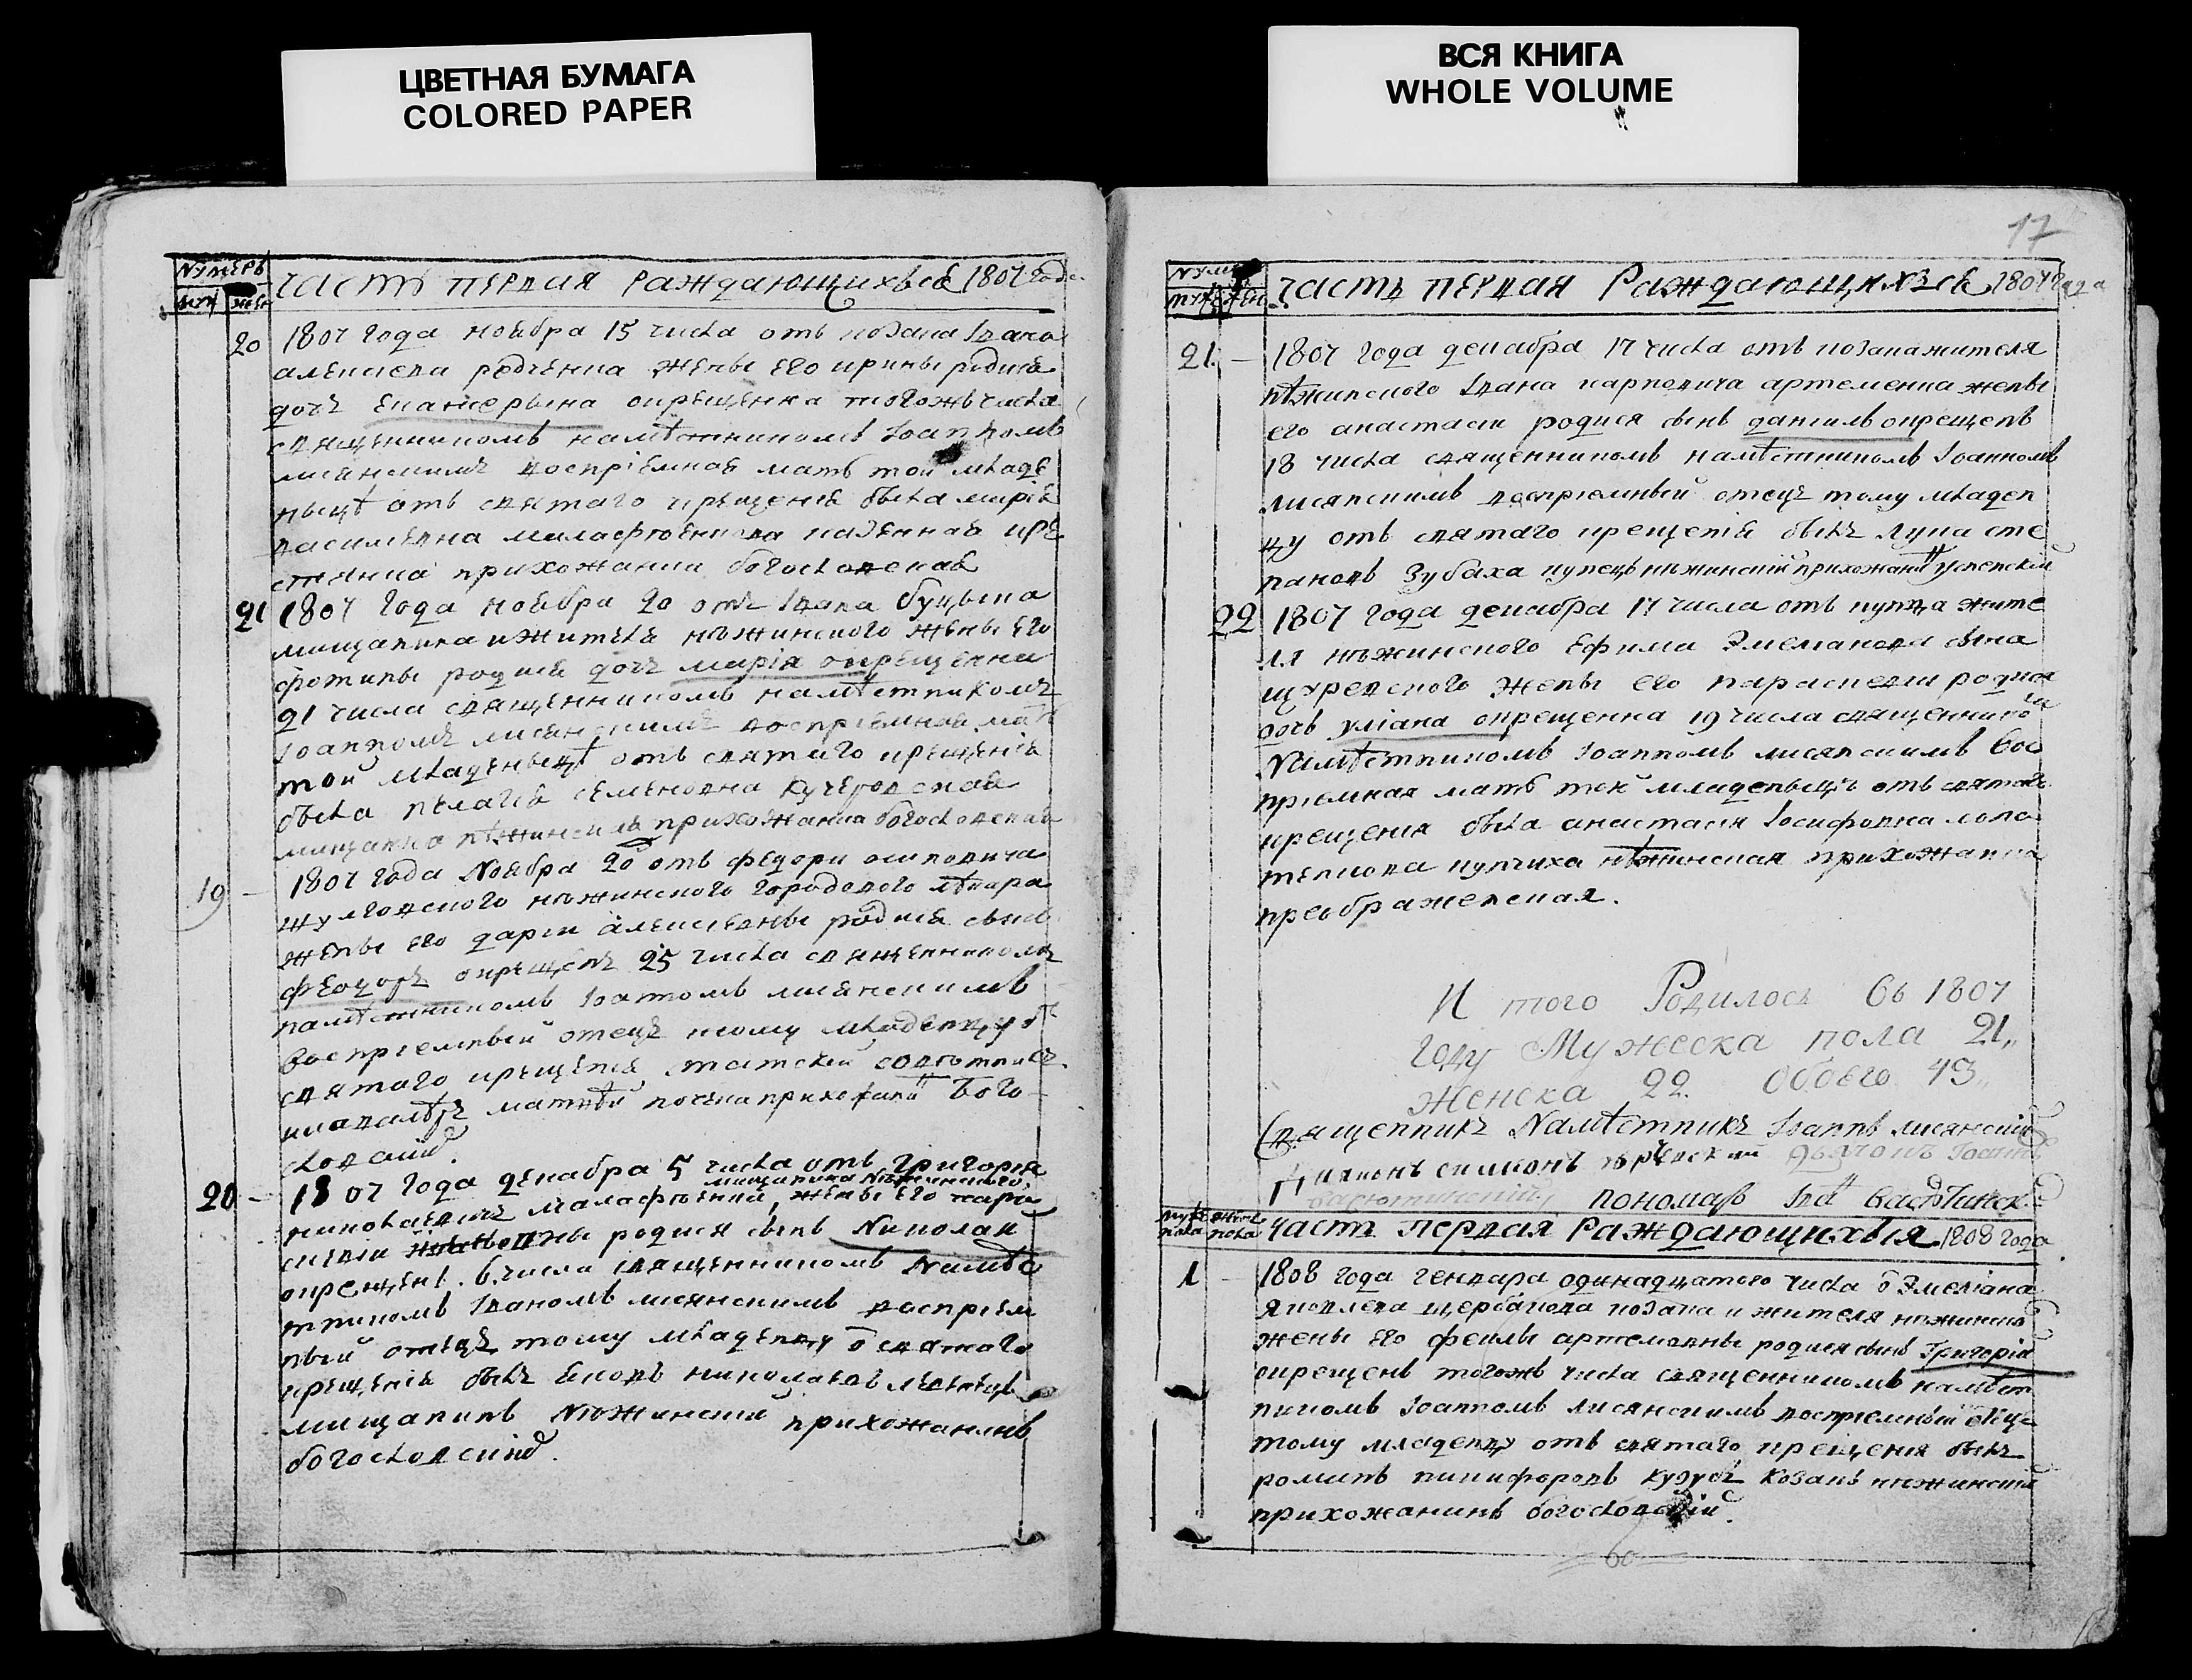 ЦВЕТНАЯ БУМАГА
COLORED PAPER
ВСЯ КНИГА
WHOLE VOLUME
17
Nумеръ
муж жен
часть первая раждающихъся 1807 года
20
1807 года ноября 15 числа отъ козака Iвана
алексеева редченка жены его ирины родися
дочъ екатерына окрещенна тогожъ числа
священникомъ намѣстникомъ Iоанномъ
лисянскимъ восприемная мать той младе
ныцѣ отъ святаго крещения была мария
василевна маласфтенкова козачка кре
стянка прихожанка богословская
21
1807 года ноября 20 отъ Iвана буцына
мищанина и жителя нѣжинского жены его
фотины родися дочъ мария окрещенна
21 числа священникомъ намѣстникомъ
Iоанномъ лисянскимъ восприемная мать
той младеныцѣ отъ святаго крещения
была пелагея семеновна кучеровская
мищанка нѣжинская прихожанка богословская
19
1807 года Nоября 20 отъ федора осиповича
нѣжинского городового лѣкара
жены его дарии алексеевны родися сынъ
феодоръ окрещенъ 25 числа священникомъ
намѣстникомъ Iоанномъ лисянскимъ
восприемный отецъ тому младенцу отъ
святаго крещения статский совѣтникъ
матвѣй прихожанинъ бого
словский
20
1807 года декабра 5 числа отъ григория
мищанина нѣжинского
николаевича маласфтенка, жены его
родися сынъ Nиколай
окрещенъ 6 числа священникомъ Nамѣс
тникомъ Iваномъ лисянскимъ восприем
ный отецъ тому младенцу ѿ святаго
крещения былъ николаевъ
мищанинъ Nѣжинский прихожанинъ
богословский
Nумеръ
часть первая Раждающихся 1807 года
21
1807 года декабра 17 числа отъ козака жителя
нѣжинского Iвана карповича артеменка жены
его анастасии родися сынъ даниилъ окрещенъ
18 числа священникомъ намѣстникомъ Iоанномъ
лисянскимъ восприемный отецъ тому младен
цу отъ святаго крещения былъ лука сте
пановъ Зубаха купецъ нѣжинский прихожанинъ успенский
22
1807 года декабра 17 числа отъ купца жите
ля нѣжинского Ефима Эмелианова сына
жены его параскевии родися
дочъ улиана окрещенна 19 числа священникомъ
Nамѣстникомъ Iоанномъ лисянскимъ вос
приемная мать той младеныцѣ отъ святаго
крещения была анастасия Iосифовна лопа
тенкова купчиха нѣжинская прихожанка
преображенская.
И того Родилося въ 1807
году Мужеска пола 21,,
женска 22. Обоего 43,,
Священникъ Nамѣстникъ Iоаннъ лисянский
Диаконъ симионъ дьяконъ Iоаннъ
пономарь
муже пола женска пола
часть первая Раждающихъся 1808 года
1
1808 года генвара одинадцатого числа ѿ Эмелиана
яковлева щербакова козака и жителя нѣжинско
жены его феклы артемовны родися сынъ Григорий
окрещенъ тогожъ числа священникомъ намѣст
никомъ Iоанномъ лисянскимъ восприемный отецъ
тому младенцу отъ святаго крещения былъ
романъ никифоровъ козакъ нѣжинский
прихожанинъ богословский.
60